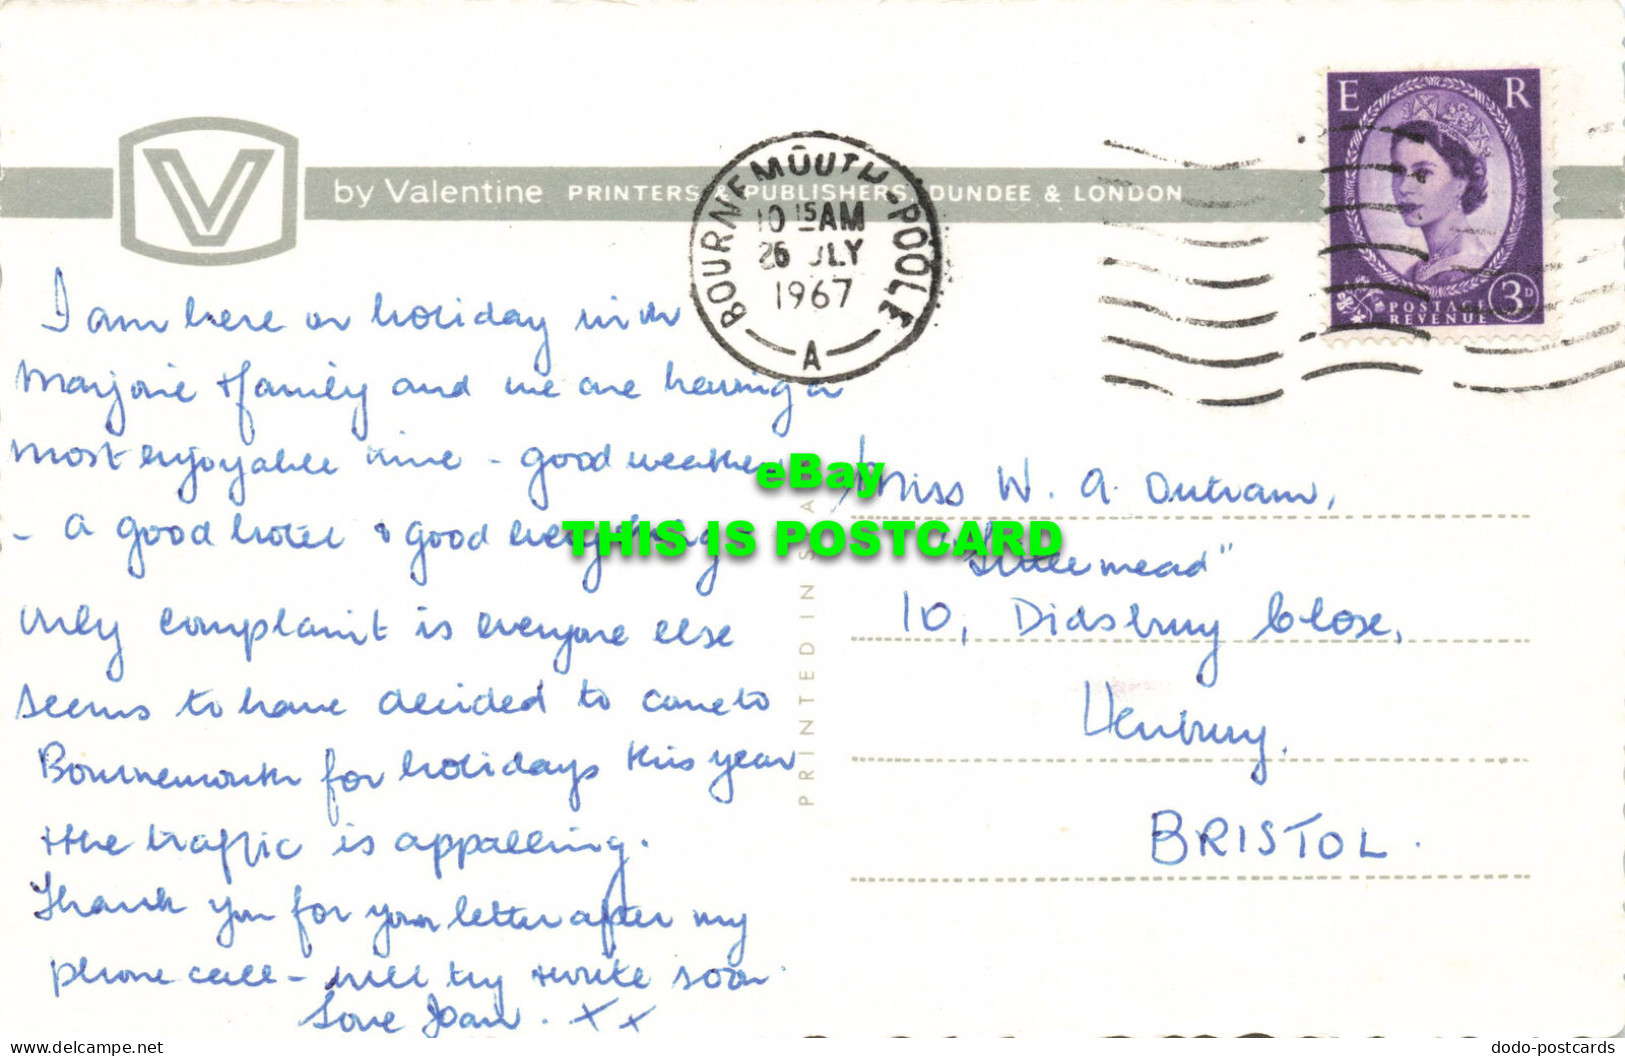 E R
POSTAGE REVENUE 3D
V
by Valentine PRINTERS & PUBLISHERS, DUNDEE & LONDON
BOURNEMOUTH-POOLE
10 15 AM
26 JLY
1967
A
I am here on holiday with
Marjorie & family and we are having a
most enjoyable time - good weather
- a good hotel & good everything -
only complaint is everyone else
seems to have decided to come to
Bournemouth for holidays this year
& the traffic is appalling.
Thank you for your letter after my
phone call - will try & write soon.
Love Joan. X X
PRINTED IN S A
Miss W. A. Outram,
"Littlemead"
10, Didsbury Close,
Henbury,
BRISTOL.
eBay
THIS IS POSTCARD
delcampe.net
dodo-postcards